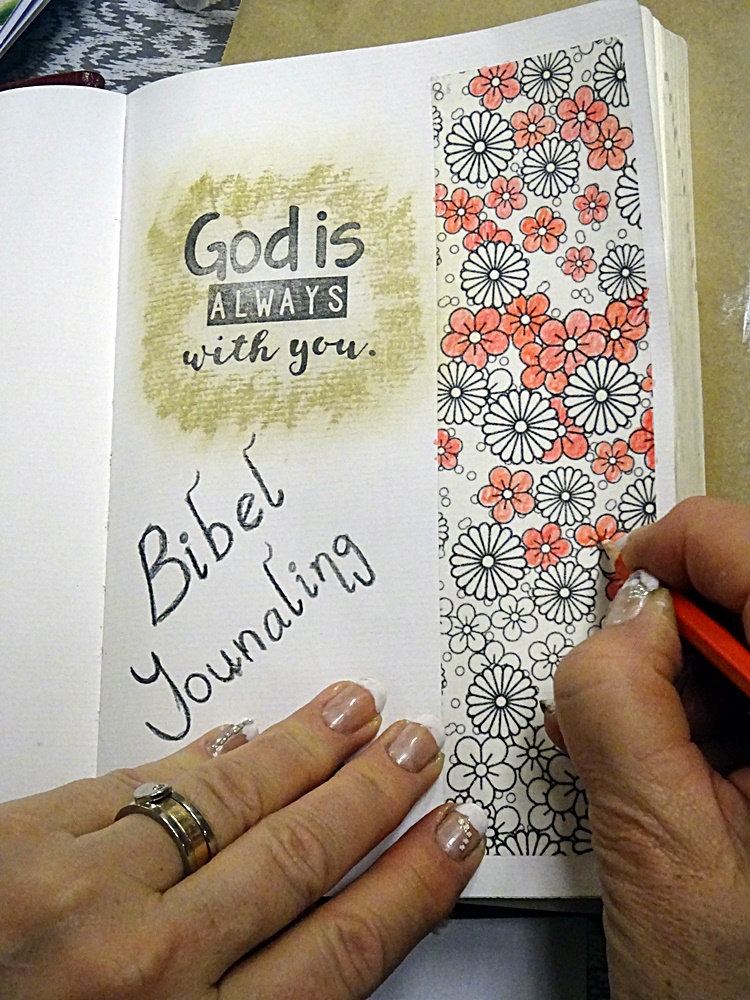 God is
ALWAYS
with you.
Bibel
Younaling